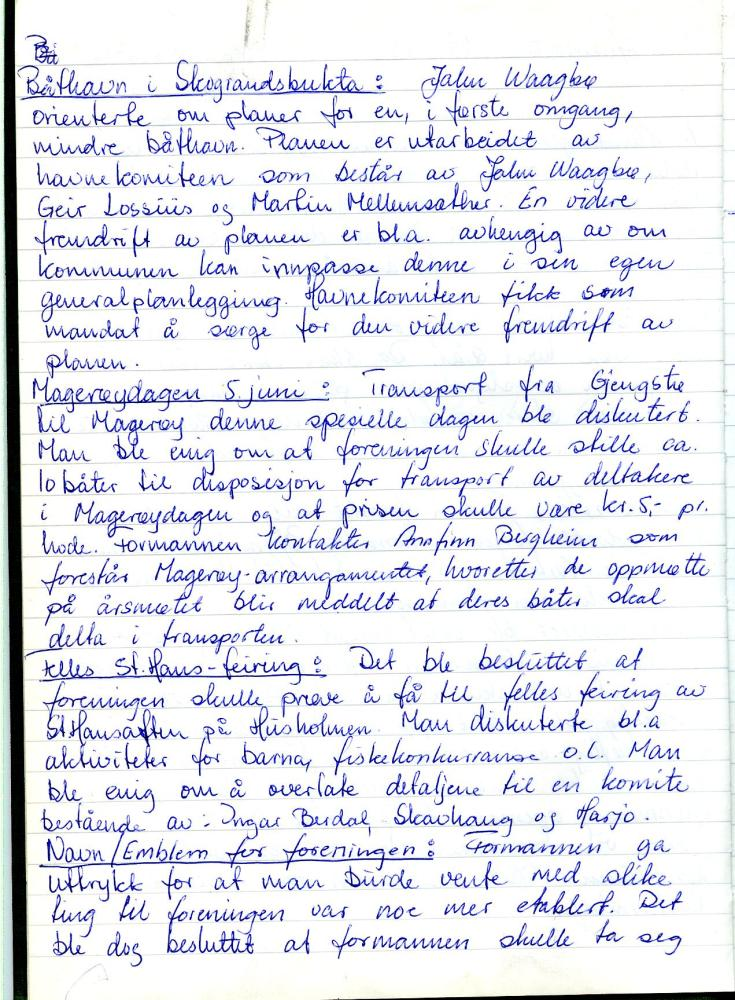 Båthavn i Skograndsbukta: Jahn Waagbø
orienterte om planer for en, i første omgang,
mindre båthavn. Planen er utarbeidet av
havnekomiteen som består av Jahn Waagbø,
Geir Lossius og Martin Mellemsæther. En videre
fremdrift av planen er bl.a. avhengig av om
kommunen kan innpasse denne i sin egen
generalplanlegging. Havnekomiteen fikk som
mandat å sørge for den videre fremdrift av
planen.
Magerøydagen 5 juni: Transport fra Gjengstø
til Magerøy denne spesielle dagen ble diskutert.
Man ble enig om at foreningen skulle stille ca.
10 båter til disposisjon for transport av deltakere
i Magerøydagen og at prisen skulle være kr. 5,- pr.
hode. Formannen kontakter Arnfinn Bergheim som
forestår Magerøy-arrangamentet, hvoretter de oppmøtte
på årsmøtet blir meddelt at deres båter skal
delta i transporten.
Felles St.Hans-feiring: Det ble besluttet at
foreningen skulle prøve å få til felles feiring av
St.Hansaften på Husholmen. Man diskuterte bl.a
aktiviteter for barna, fiskekonkurranse o.l. Man
ble enig om å overlate detaljene til en komite
bestående av: Ingar Berdal, Skavhaug og Harjo.
Navn/Emblem for foreningen: Formannen ga
uttrykk for at man burde vente med slike
ting til foreningen var noe mer etablert. Det
ble dog besluttet at formannen skulle ta seg